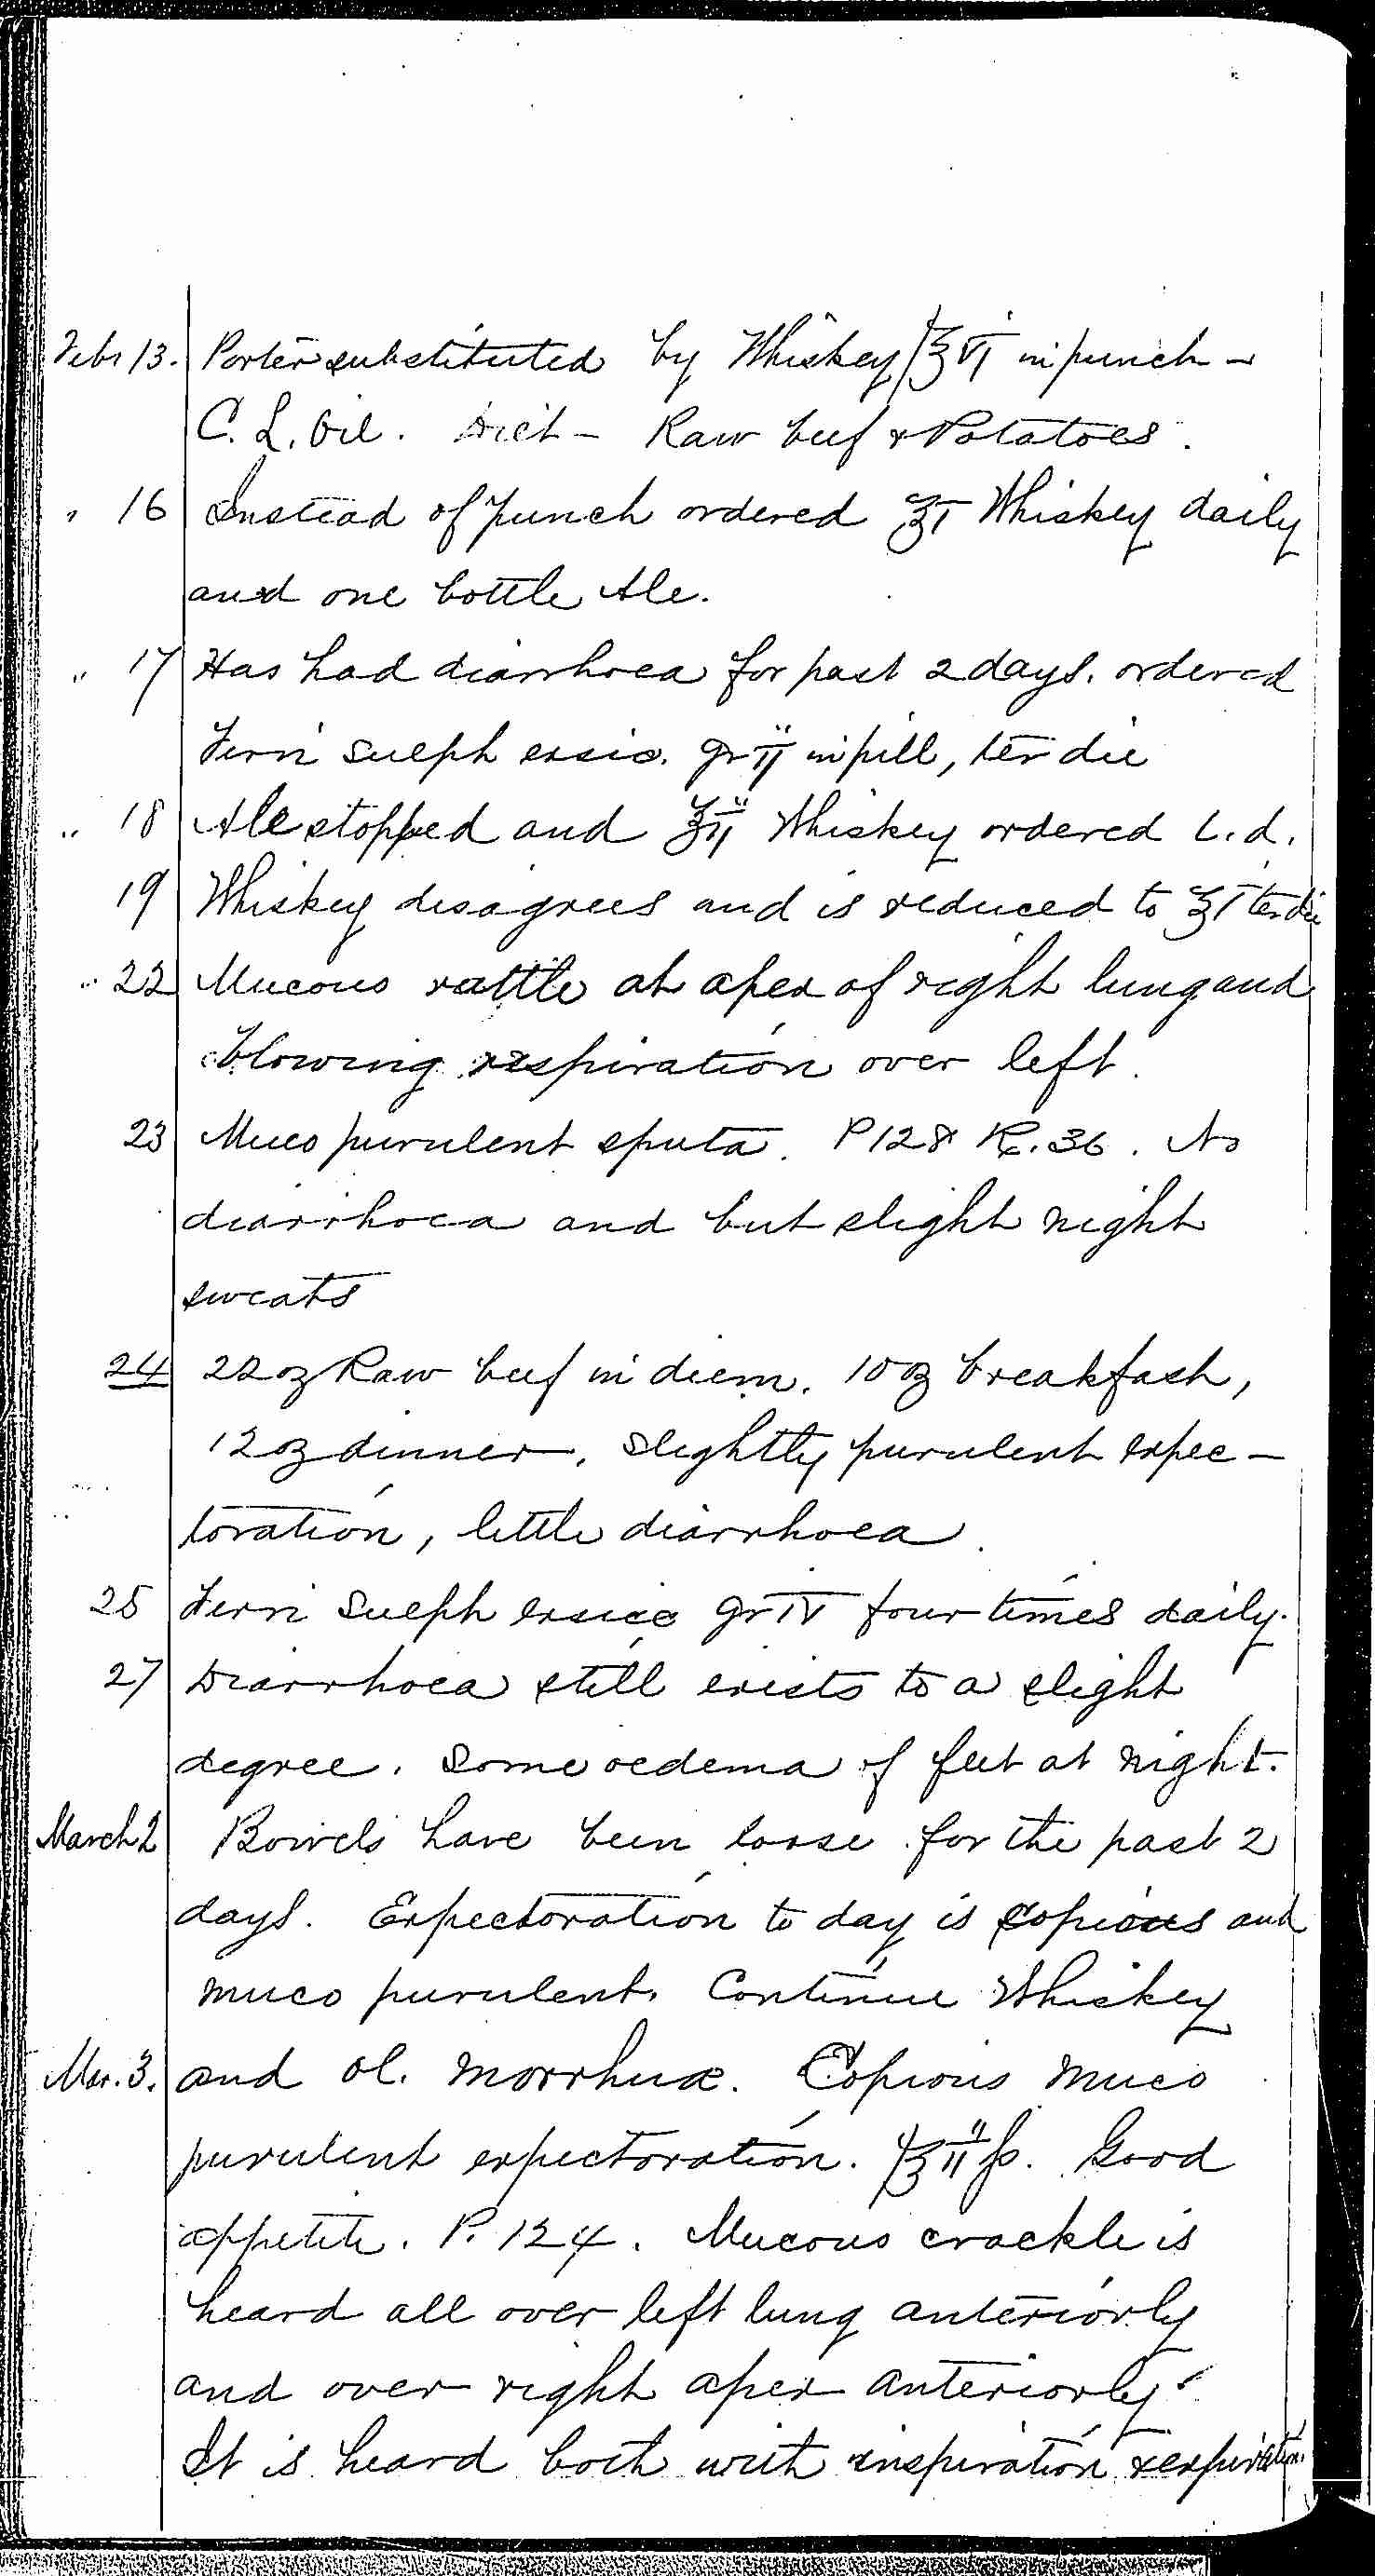 Febr 13. Porter substituted by Whiskey f℥VI in punch –
C. L. Oil. Diet – Raw beef & Potatoes.
" 16 Instead of punch ordered ℥I Whiskey daily
and one bottle Ale.
" 17 Has had diarrhoea for past 2 days. ordered
Ferri sulph exsic. gr II in pill, ter die
" 18 Ale stopped and ℥II Whiskey ordered t.d.
19 Whiskey disagrees and is reduced to ℥I ter die
" 22 Mucous rattle at apex of right lung and
blowing respiration over left.
23 Muco purulent sputa. P 128 R. 36. No
diarrhoea and but slight night
sweats
24 22 oz Raw beef in diem. 10 oz breakfast,
12 oz dinner. Slightly purulent expec-
toration, little diarrhoea.
25 Ferri sulph exsicc gr IV four times daily.
27 Diarrhoea still exists to a slight
degree. Some oedema of feet at night.
March 2 Bowels have been loose for the past 2
days. Expectoration to day is copious and
muco purulent. Continue Whiskey
Mar. 3. and ol. morrhuæ. Copious muco
purulent expectoration. f℥IIfs. Good
appetite. P. 124. Mucous crackle is
heard all over left lung anteriorly
and over right apex anteriorly.
It is heard both with inspiration & expiration.